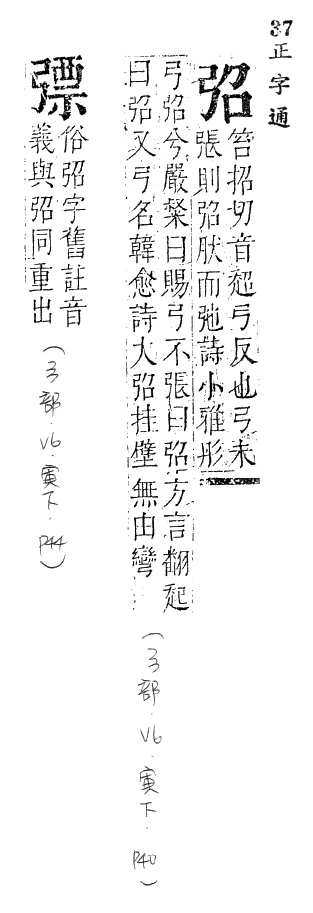 37正字通
弨
笞招切音超弓反也弓未
張則弨肰而弛詩小雅彤
弓弨兮嚴粲曰賜弓不張曰弨方言翻起
曰弨又弓名韓愈詩大弨挂壁無由彎
(弓部.V6.寅下.P40)
俗弨字舊註音
義與弨同重出
(弓部.V6.寅下.P44)